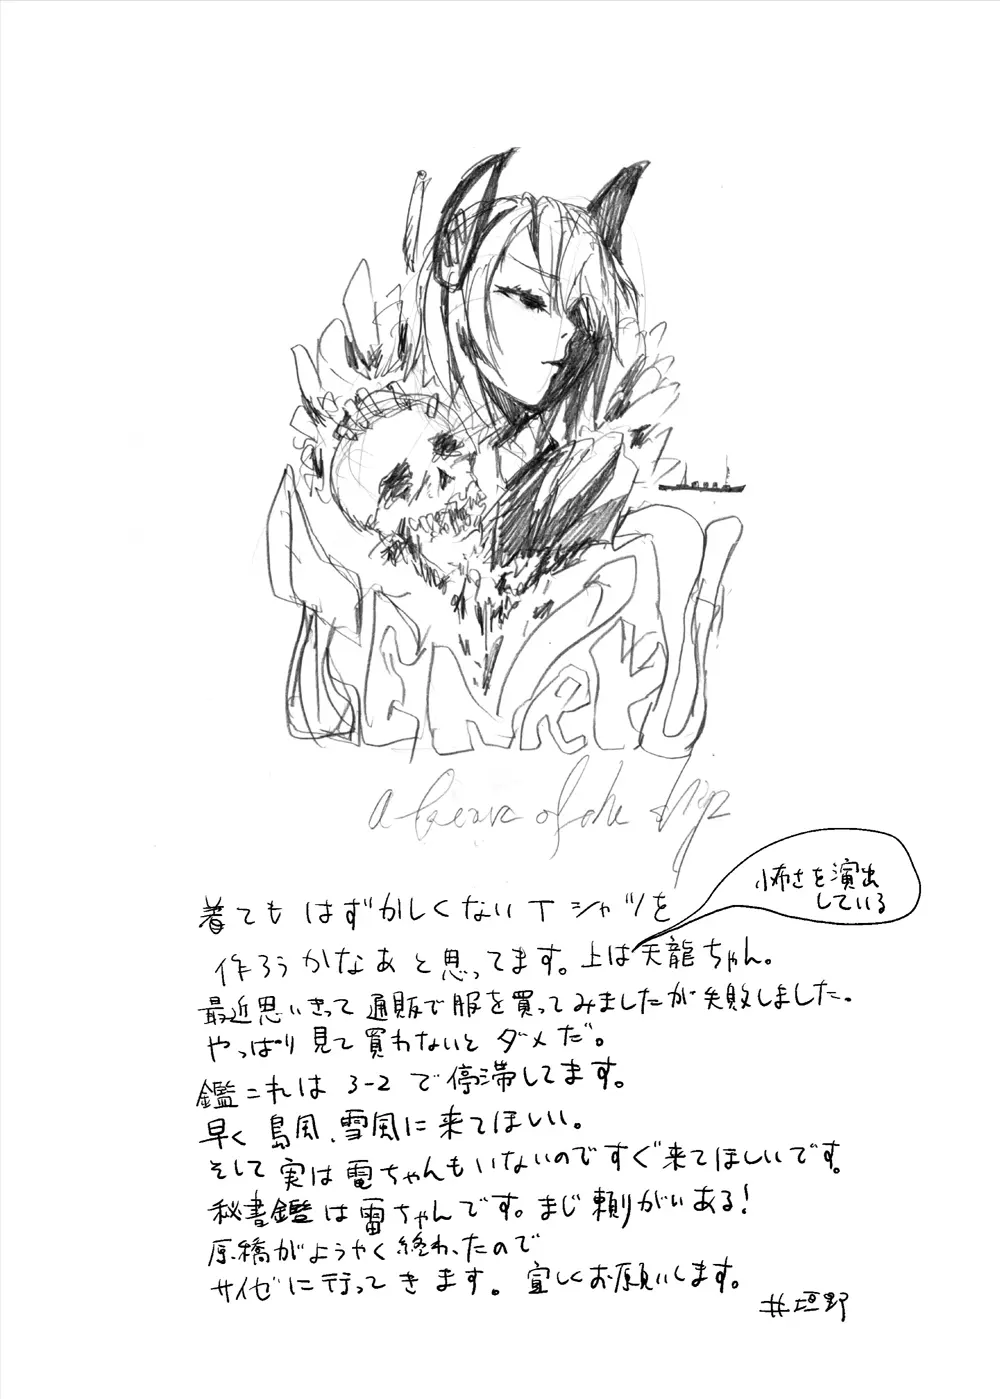 TENRYU
a
of the
怖さを演出
している
着てもはずかしくないTシャツを
作ろうかなあと思ってます。上は天龍ちゃん。
最近思いきって通販で服を買ってみましたが失敗しました。
やっぱり見て買わないとダメだ。
鑑これは3-2で停滞してます。
早く島風、雪風に来てほしい。
そして実は電ちゃんもいないのですぐ来てほしいです。
秘書鑑は雷ちゃんです。まじ頼りがいある!
原稿がようやく終わったので
サイゼに行ってきます。宜しくお願いします。
井垣野